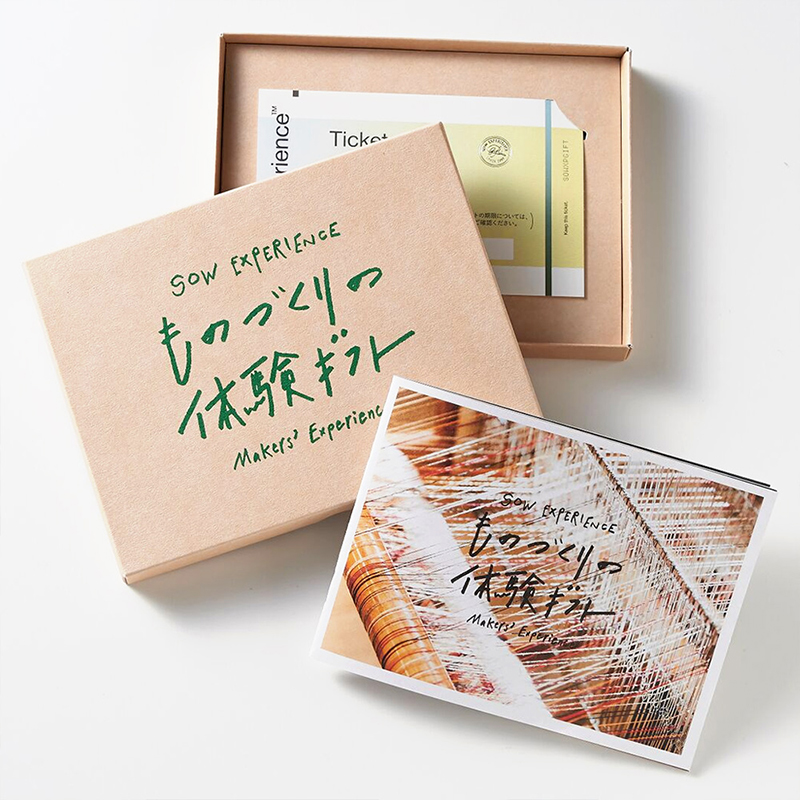 rience™
Ticket
SOWXPGIFT
Keep this ticket.
トの期限については、
ご確認ください。
SOW EXPERIENCE
ものづくりの
体験ギフト
Makers' Experience
SOW EXPERIENCE
ものづくりの
体験ギフト
Makers' Experience